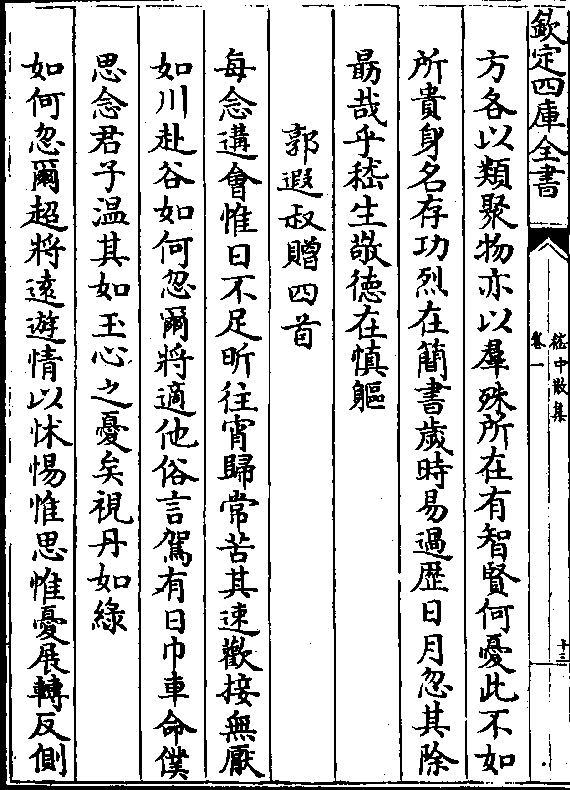 欽定四庫全書
嵇中散集
卷一
十三
方各以類聚物亦以羣殊所在有智賢何憂此不如
所貴身名存功烈在簡書歲時易過歴日月忽其除
勗哉乎嵇生敬徳在慎軀
郭遐叔贈四首
每念遘會惟日不足昕往宵歸常苦其速歡接無厭
如川赴谷如何忽爾將適他俗言駕有日巾車命僕
思念君子温其如玉心之憂矣視丹如綠
如何忽爾超將遠遊情以怵惕惟思惟憂展轉反側